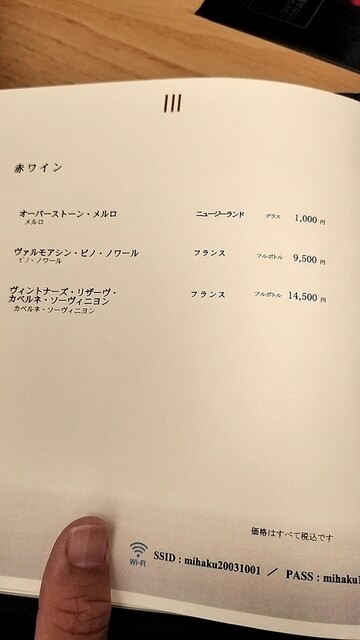 赤ワイン
オーバーストーン・メルロ ニュージーランド グラス 1,000 円
メルロ
ヴァルモアシン・ピノ・ノワール フランス フルボトル 9,500 円
ピノ・ノワール
ヴィントナーズ・リザーヴ・
カベルネ・ソーヴィニヨン フランス フルボトル 14,500 円
カベルネ・ソーヴィニヨン
価格はすべて税込です
Wi-Fi SSID : mihaku20031001 ／ PASS : mihaku